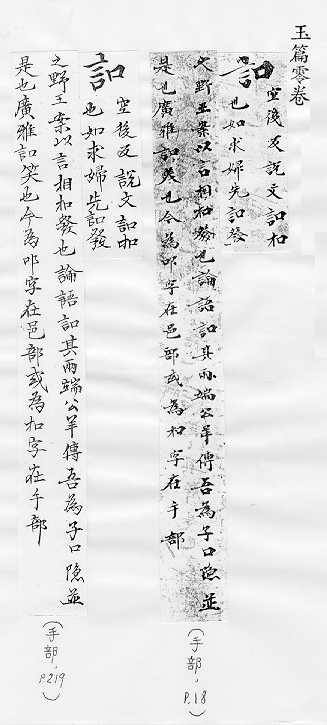 玉篇零卷
訒 空後反說文訒扣
也如求婦先訒發
之野王案以言相扣發也論語訒其兩端公羊傳吾為子口隱並
是也廣雅訒笑也今為叩字在邑部或為扣字在手部
(手部,P.18)
訒 空後反說文訒扣
也如求婦先訒發
之野王案以言相扣發也論語訒其兩端公羊傳吾為子口隱並
是也廣雅訒笑也今為叩字在邑部或為扣字在手部
(手部,P.219)